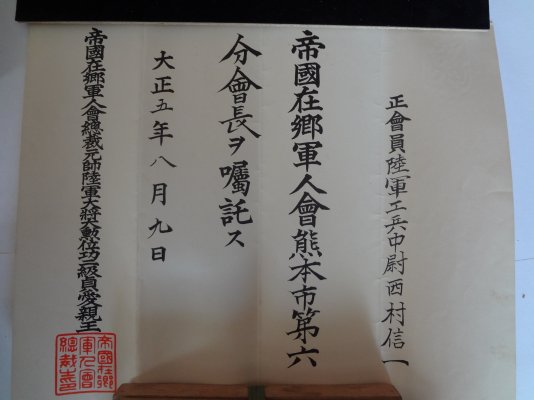 正會員陸軍工兵中尉西村信一
帝國在郷軍人會熊本市第六
分會長ヲ囑託ス
大正五年八月九日
帝國在郷軍人會總裁元帥陸軍大將大勳位功二級貞愛親王
帝國在郷
軍人會
總裁印